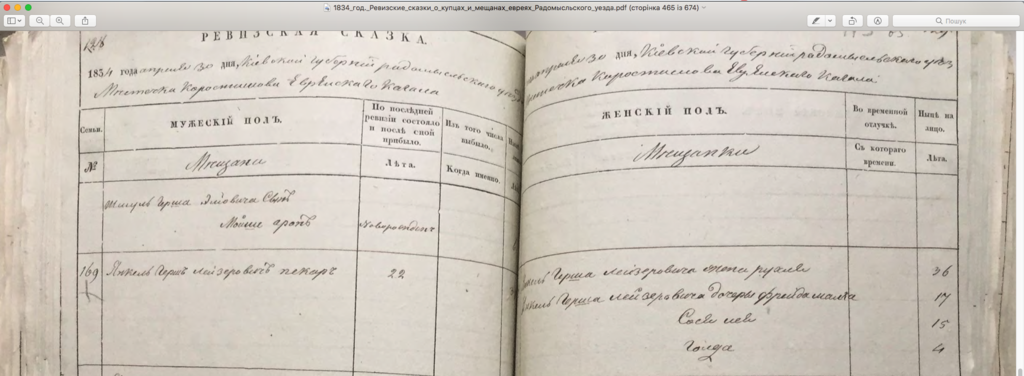 1834_год._Ревизские_сказки_о_купцах_и_мещанах_евреях_Радомысльского_уезда.pdf (сторінка 465 із 674)
Пошук
РЕВИЗСКАЯ СКАЗКА.
1834 года апреля 30 дня, Кіевской Губерніи радомысльского
Мѣсточка Коростишова Еврейскаго Кагала
Семьи.
МУЖЕСКІЙ ПОЛЪ.
По последней ревизіи состояло и послѣ оной прибыло.
Изъ того числа выбыло.
№
Мещани
Лѣта.
Когда именно.
Шмуль Герша
Мойше аронъ
Новорожденъ
169
Янкель Гершъ Лейзеровичъ пекаръ
22
апреля 30 дня, Кіевской Губерніи радомысльского
Коростишова Еврейскаго Кагала
ЖЕНСКІЙ ПОЛЪ.
Во временной отлучкѣ.
Нынѣ на лицо.
Мещанки
Съ котораго времени.
Лѣта.
Герша Лейзеровича жена рухля
36
Герша Лейзеровича дочеры фрейда
17
15
Голда
4